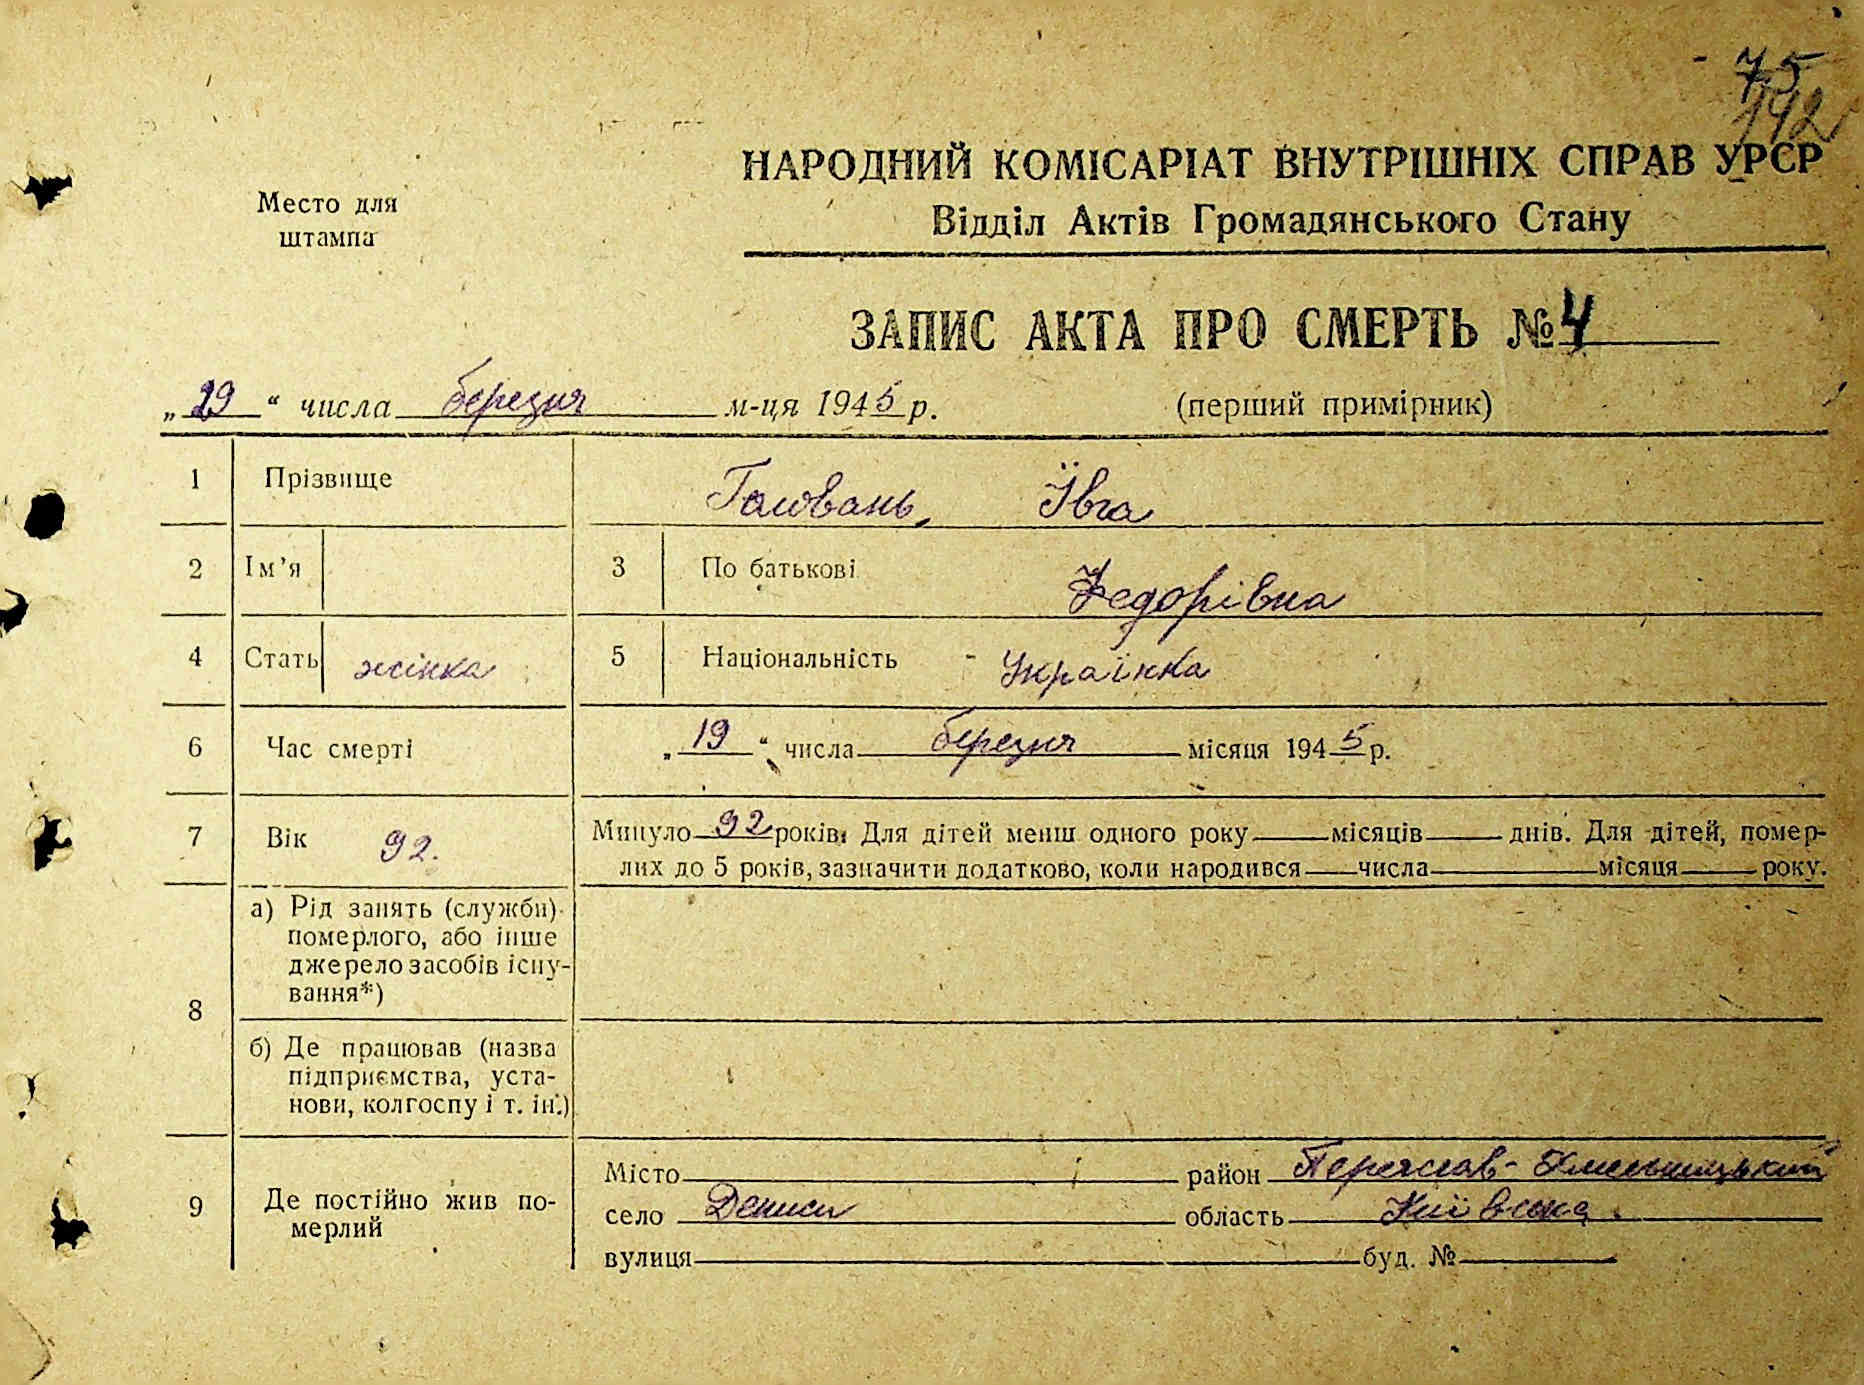 75
192
НАРОДНИЙ КОМІСАРІАТ ВНУТРІШНІХ СПРАВ УРСР
Место для
штампа
Відділ Актів Громадянського Стану
ЗАПИС АКТА ПРО СМЕРТЬ № 4
„29“ числа березня м-ця 1945 р. (перший примірник)
1 Прізвище Головань, Ївга
2 Ім’я 3 По батькові Федорівна
4 Стать жінка 5 Національність Українка
6 Час смерті „19“ числа березня місяця 1945 р.
7 Вік 92. Минуло 92 років. Для дітей менш одного року місяців днів. Для дітей, помер-
лих до 5 років, зазначити додатково, коли народився числа місяця року.
8 а) Рід занять (служби)
померлого, або інше
джерело засобів існу-
вання*)
б) Де працював (назва
підприємства, уста-
нови, колгоспу і т. ін.)
9 Де постійно жив по-
мерлий
Місто район Переяслав-Хмельницький
село Дениси область Київська
вулиця буд. №